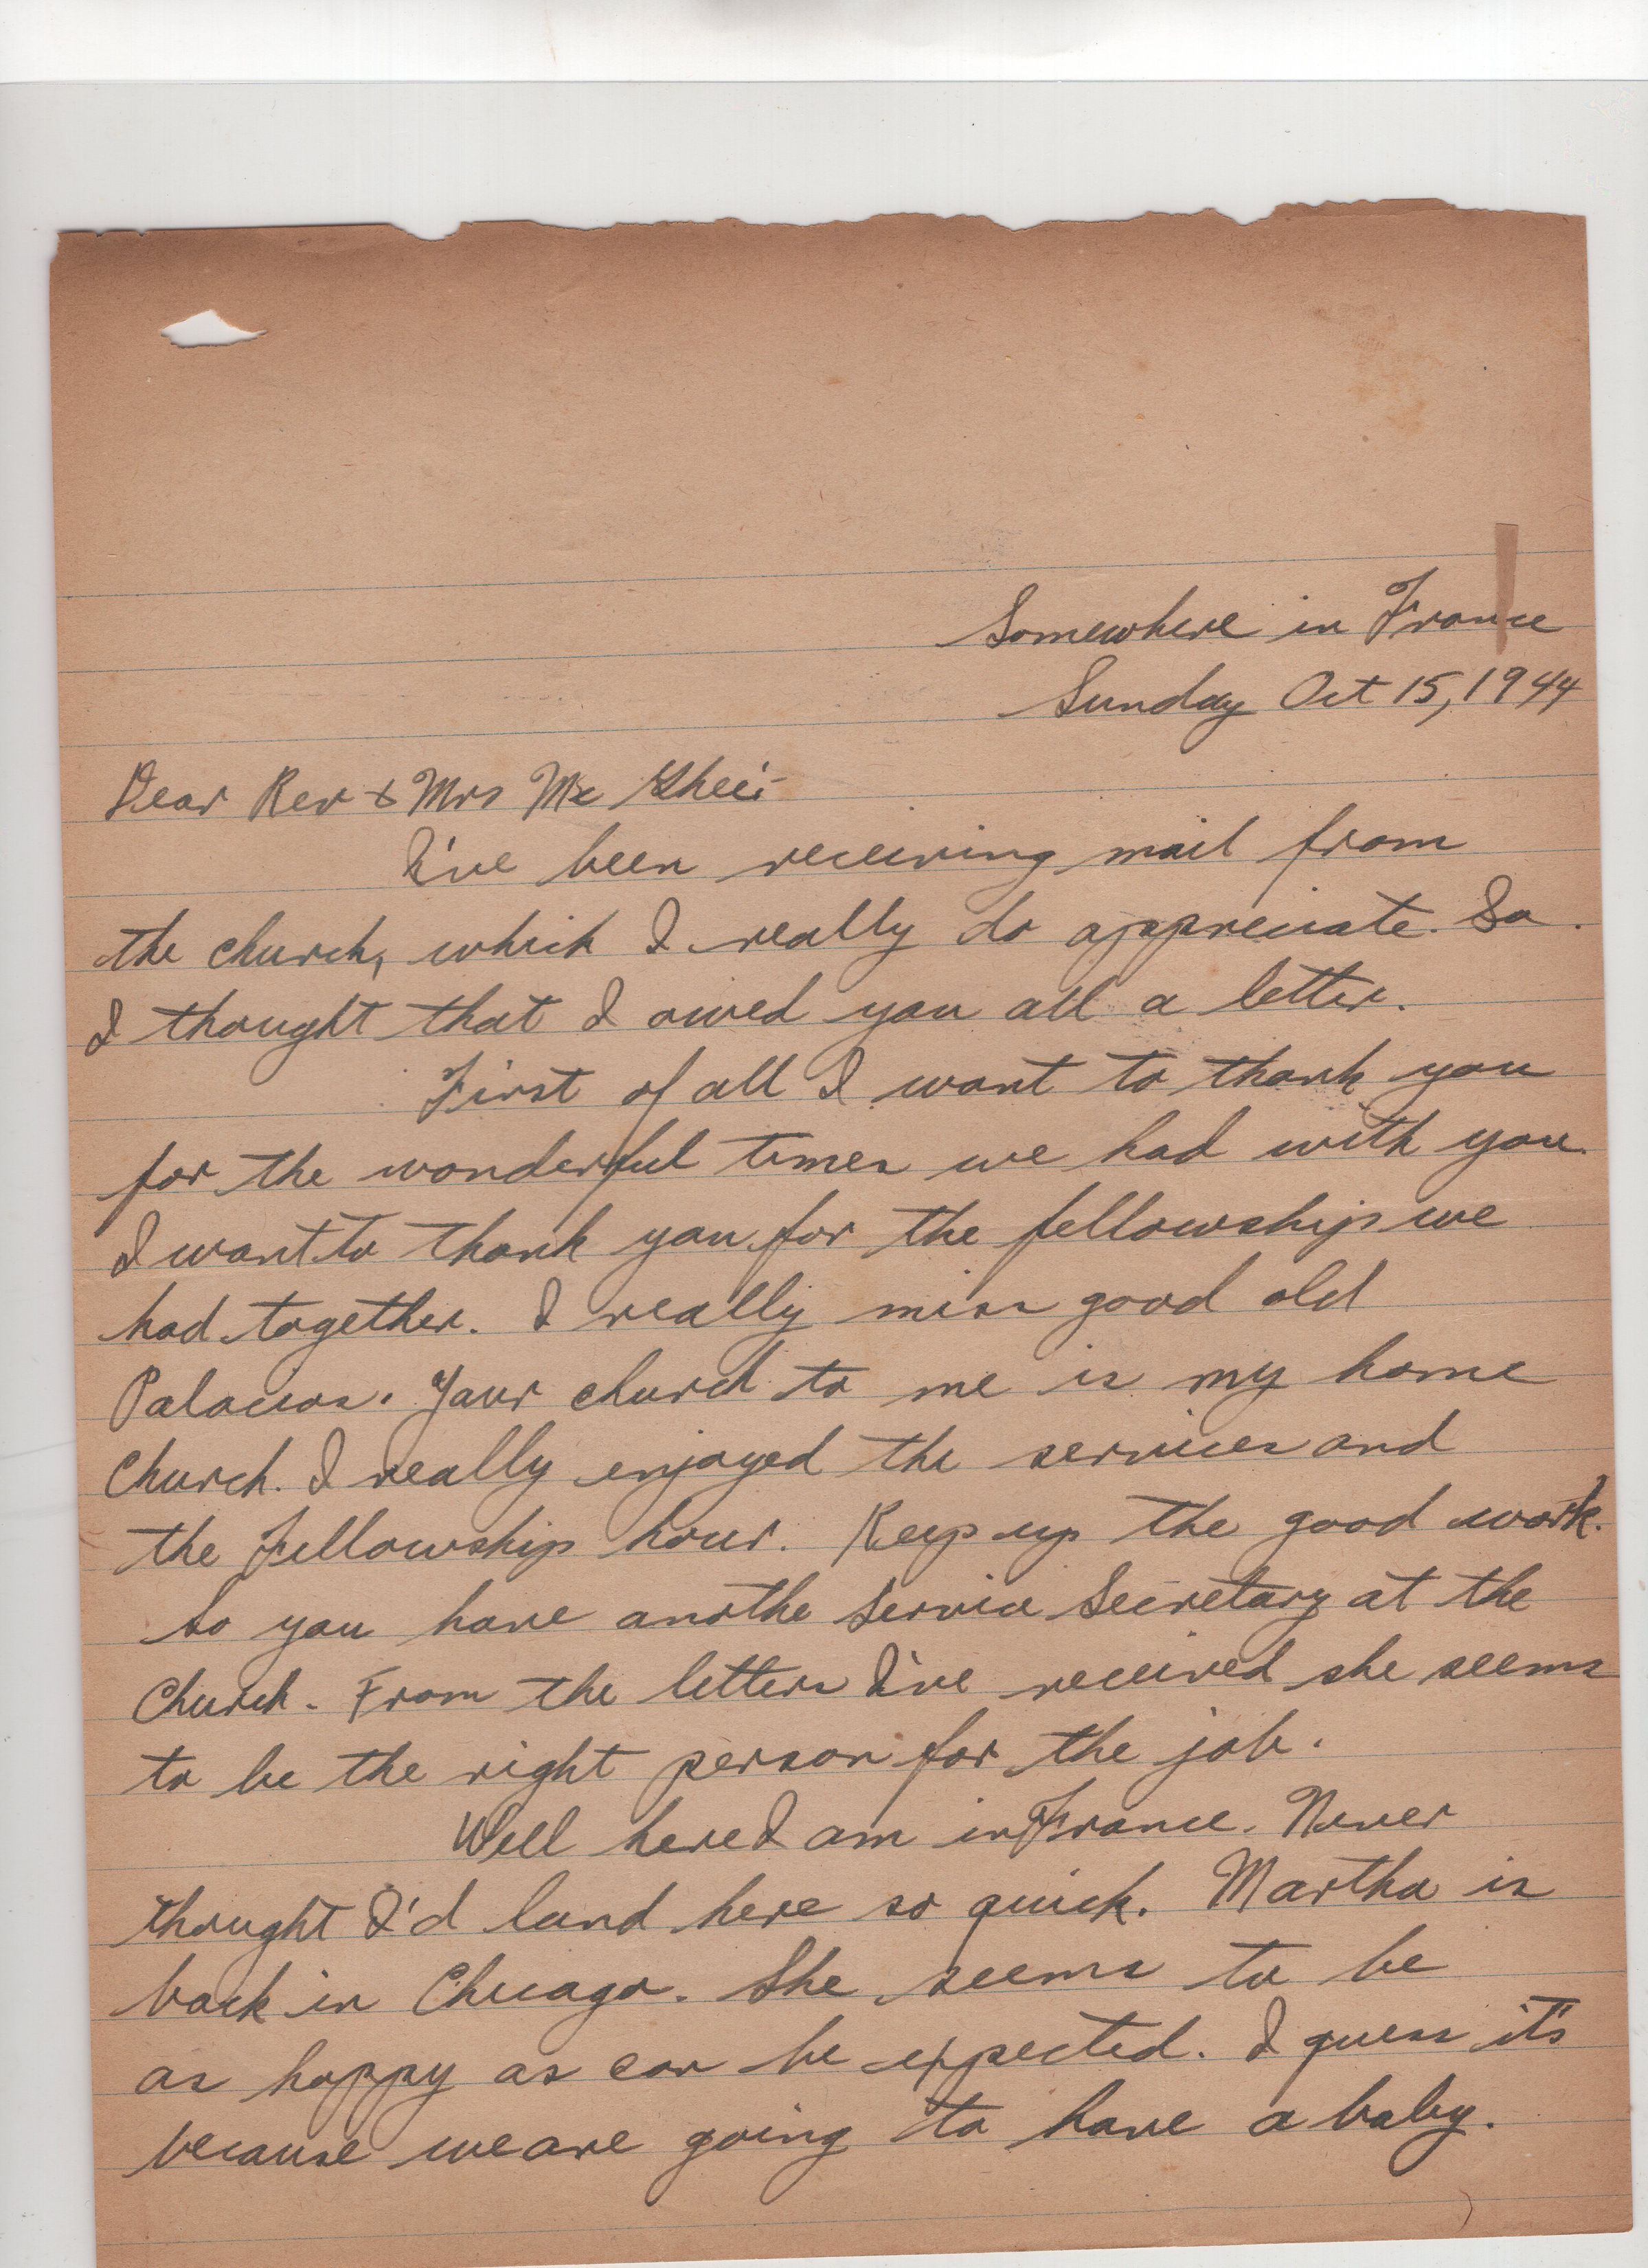 Somewhere in France
Sunday Oct 15, 1944
Dear Rev & Mrs Mc Ghee:-
I've been receiving mail from
the church, which I really do appreciate. So
I thought that I owed you all a letter.
First of all I want to thank you
for the wonderful times we had with you.
I want to thank you for the fellowship we
had together. I really miss good old
Palacios. Your church to me is my home
Church. I really enjoyed the services and
the Fellowship hour. Keep up the good work.
So you have anothe Service Secretary at the
Church. From the letters I've received she seems
to be the right person for the job.
Well here I am in France. Never
thought I'd land here so quick. Martha is
back in Chicago. She seems to be
as happy as can be expected. I guess it's
because we are going to have a baby.